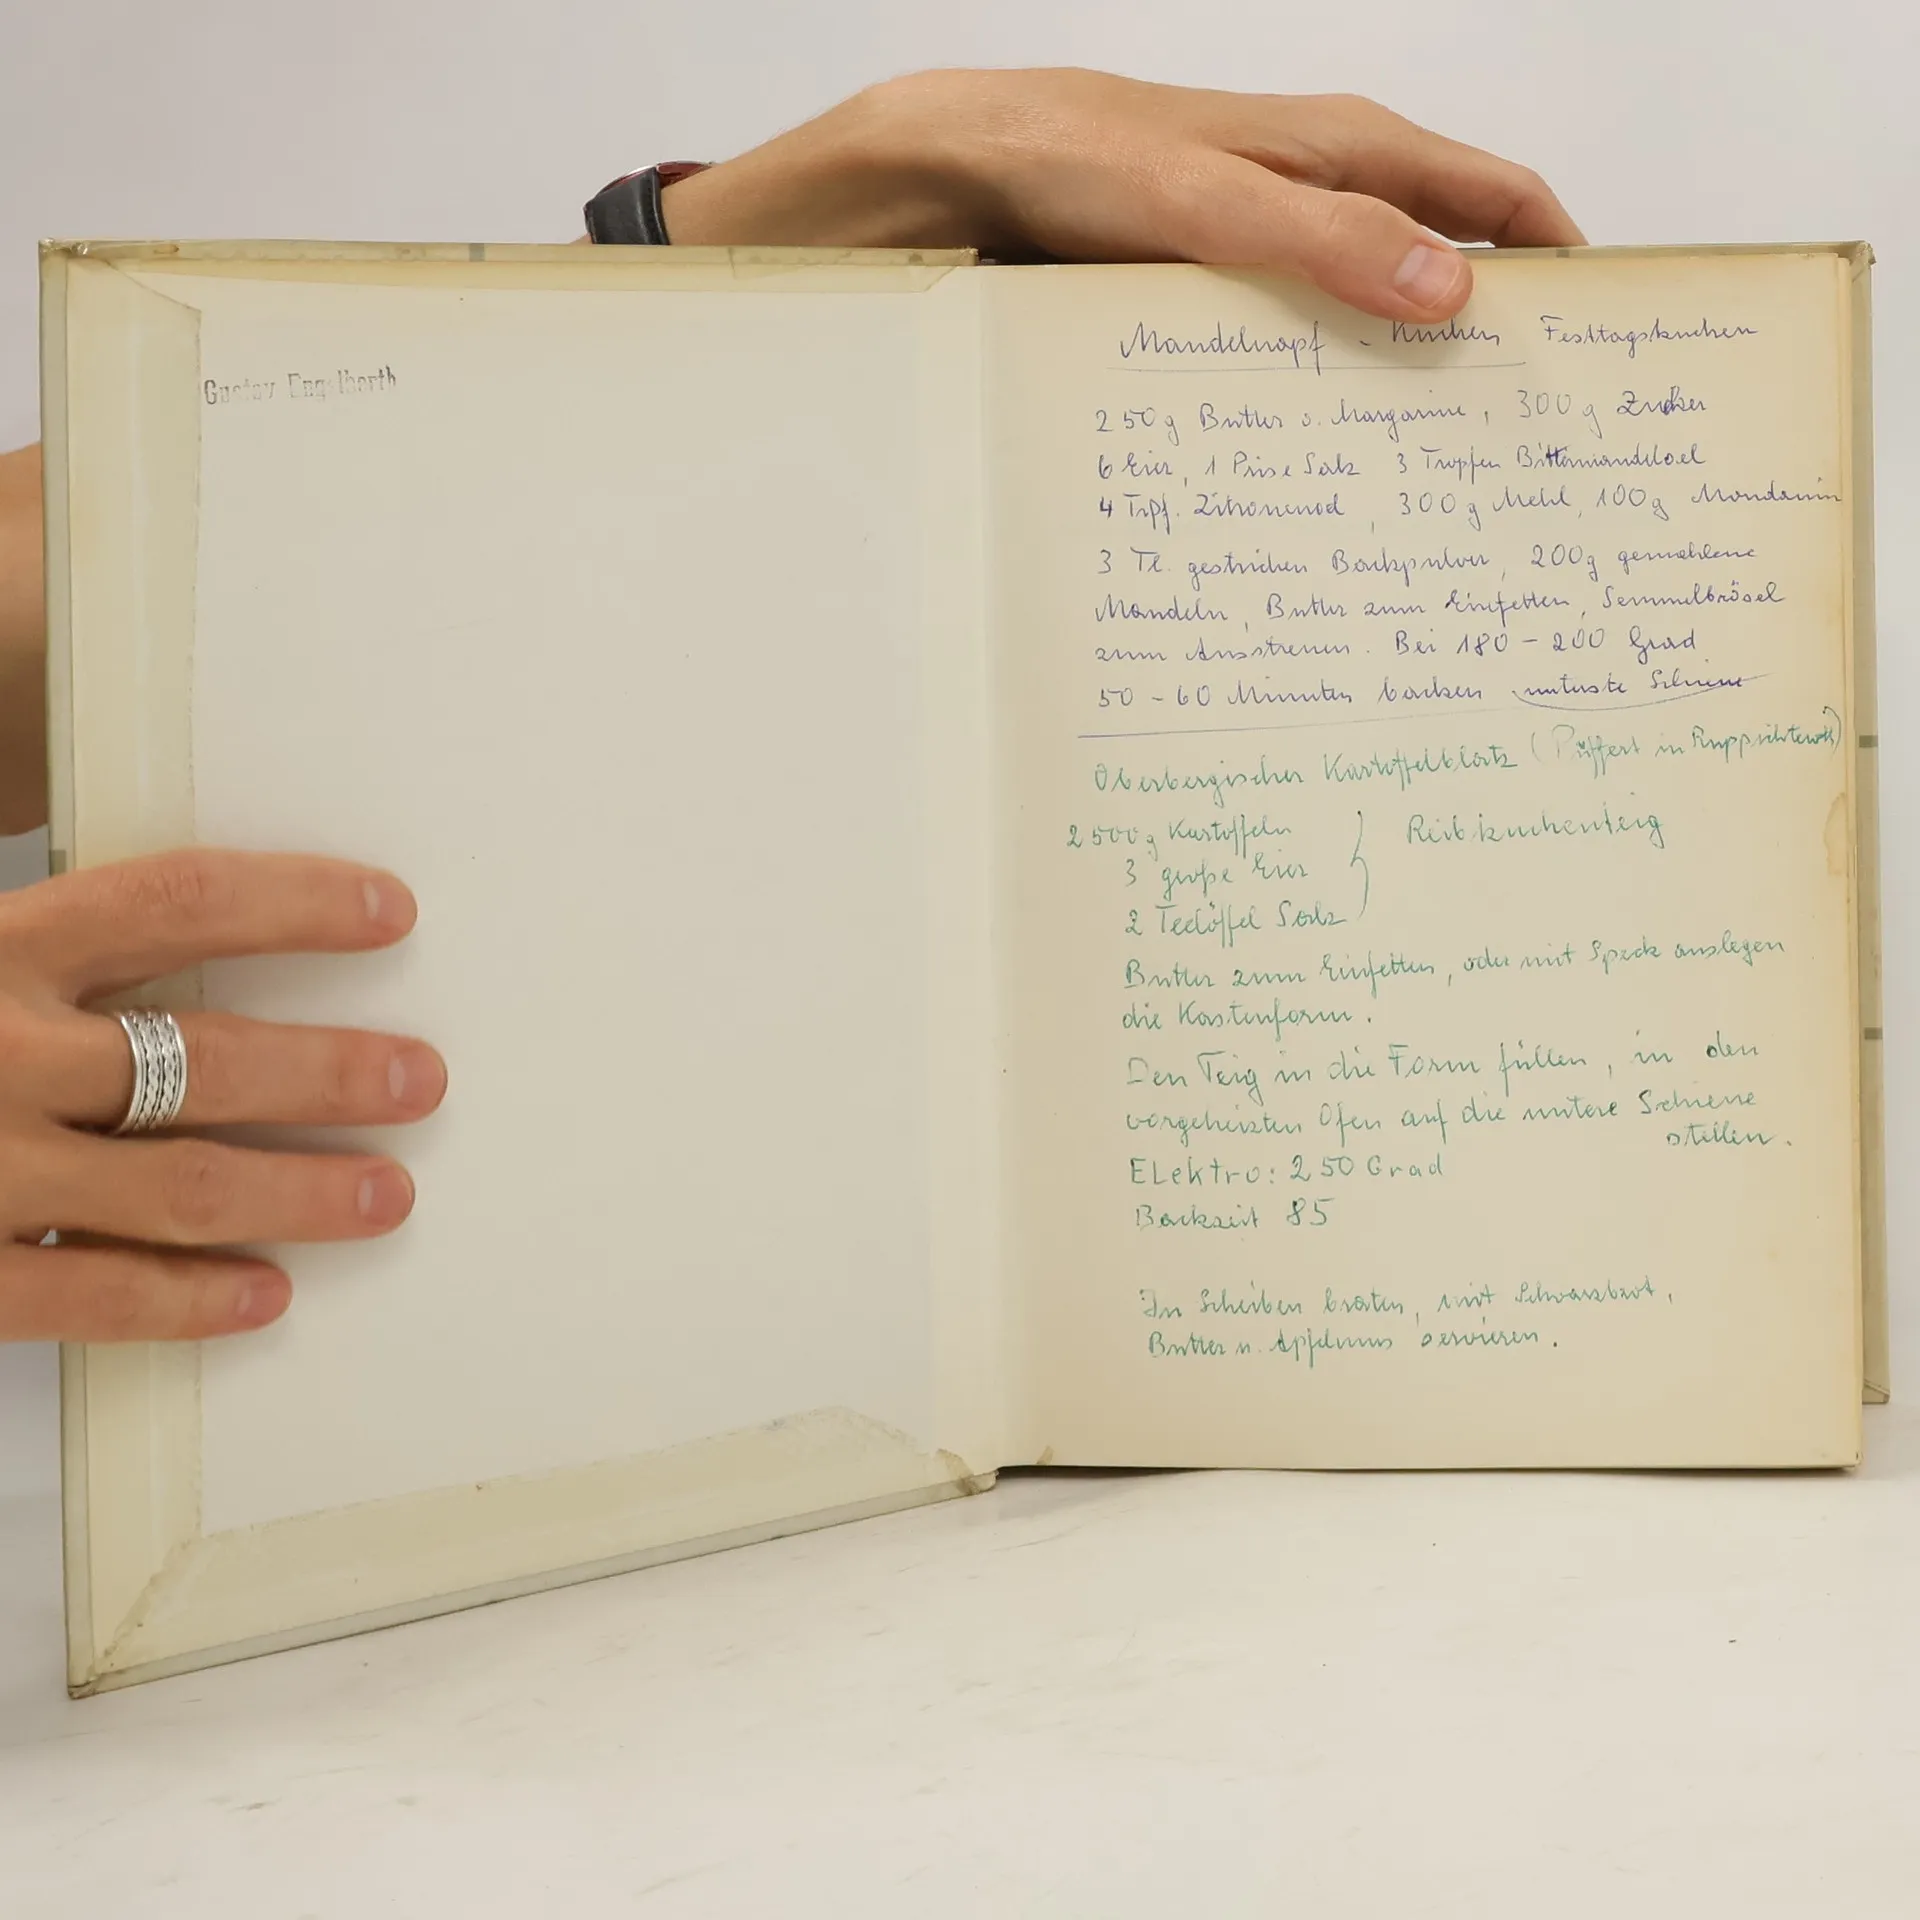 Gustav Engelberth
Mandelnapf - Kuchen Festtagskuchen
250g Butter o. Margarine, 300g Zucker
6 Eier, 1 Prise Salz 3 Tropfen Bittermandeloel
4 Trpf. Zitronenoel, 300g Mehl, 100g Mondamin
3 Tl. gestrichen Backpulver, 200g gemahlene
Mandeln, Butter zum Einfetten, Semmelbrösel
zum Ausstreuen. Bei 180 - 200 Grad
50 - 60 Minuten backen unterste Schiene
Oberbergischer Kartoffelblatz (Püffert in Ruppichteroth)
2500g Kartoffeln
3 große Eier
2 Teelöffel Salz
Reibkuchenteig
Butter zum Einfetten, oder mit Speck auslegen
die Kastenform.
Den Teig in die Form füllen, in den
vorgeheizten Ofen auf die untere Schiene
stellen.
Elektro: 250 Grad
Backzeit 85
In Scheiben braten, mit Schwarzbrot,
Butter u. Apfelmus servieren.